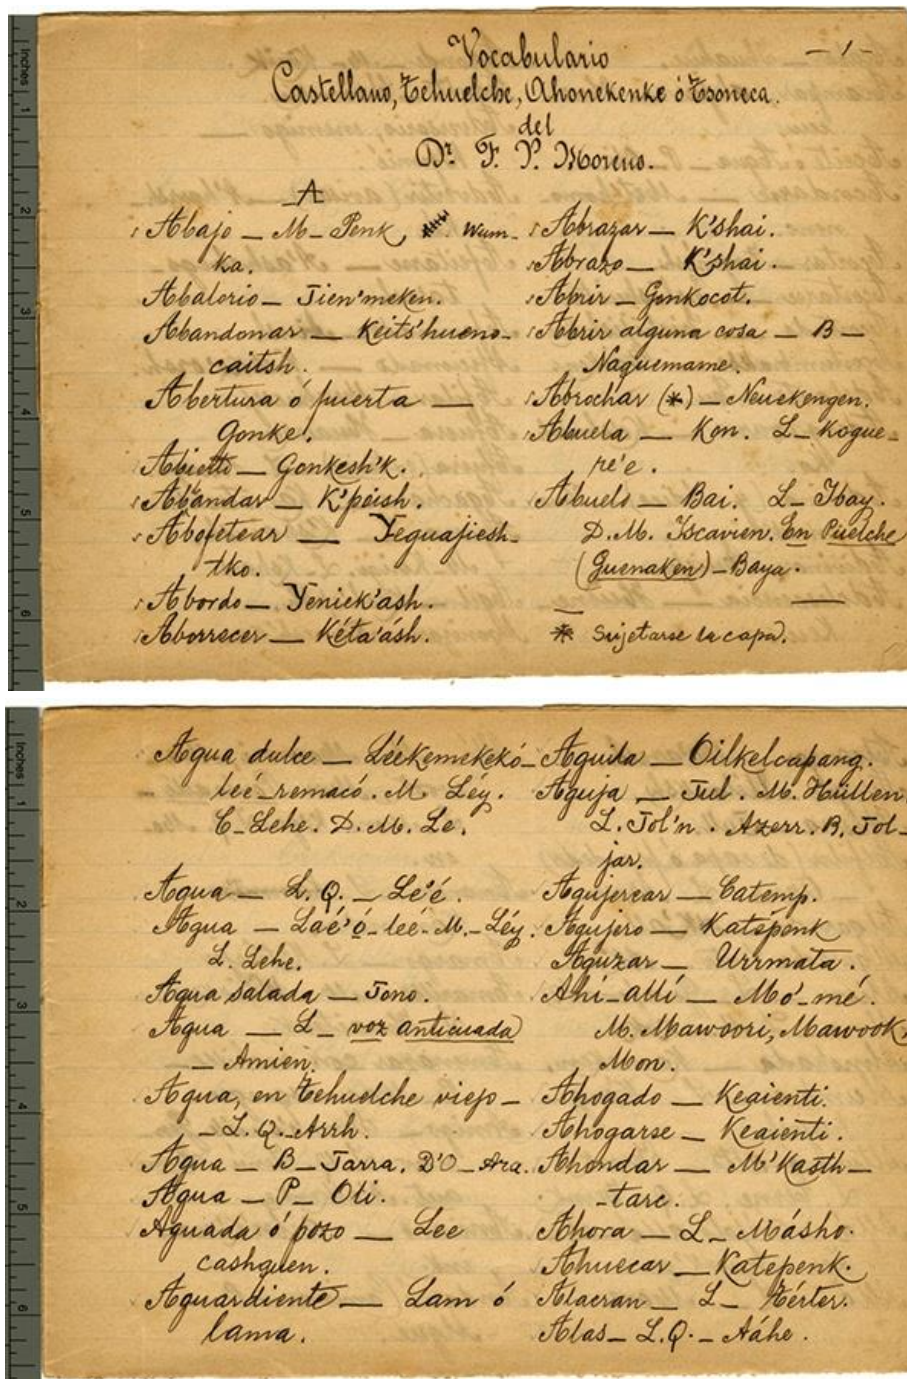 Vocabulario
- 1 -
Castellano, Tehuelche, Ahonekenke ó Tsoneca.
del
Dr. F. P. Moreno.
A
Abajo — M — Penk, Wum-
ka.
Abalorio — Jien'meken.
Abandonar — Keits'hueno-
caitsh.
Abertura ó puerta —
Gonke.
Abierto — Gonkesh'k.
Ablandar — K'péish.
Abofetear — Yeguajiesh-
tko.
Abordo — Yeniek'ash.
Aborrecer — Kéta'ásh.
Abrazar — K'shai.
Abrazo — K'shai.
Abrir — Gonkocot.
Abrir alguna cosa — B —
Naguemame.
Abrochar (*) — Neuekengen.
Abuela — Kon. L — Kogue-
re'e.
Abuelo — Bai. L — Ibay.
D. M. Iscavien. En Puelche
(Guenaken) — Baya.
* Sujetarse la capa.
Agua dulce — Léekemekekó-
leé-remacó. M. Léy.
C — Lehe. D. M. Le.
Agua — L. Q. — Le'é.
Agua — Laé'ó-leé- M. — Léy.
L. Lehe.
Agua salada — Jono.
Agua — L — voz anticuada
— Amien.
Agua, en Tehuelche viejo —
— L. Q. — Arrh.
Agua — B — Jarra. D'O — Ara.
Agua — P — Oli.
Aguada ó pozo — Lee
cashquen.
Aguardiente — Lam ó
lama.
Aguila — Oilkelcapang.
Aguja — Jul. M. Hüllen
L. Jol'n. Azerr. B. Jol-
jar.
Agujerear — Catemp.
Agujero — Katépenk
Aguzar — Urrmata.
Ahí-allí — Mo'-mé.
M. Mawoori, Mawook,
Mon.
Ahogado — Keaienti.
Ahogarse — Keaienti.
Ahondar — M'Kasth —
-tarc.
Ahora — L — Másho.
Ahuecar — Katepenk.
Alacran — L — Hérter.
Alas — L. Q. — Aáhe.
Inches
1
2
3
4
5
6
Inches
1
2
3
5
6